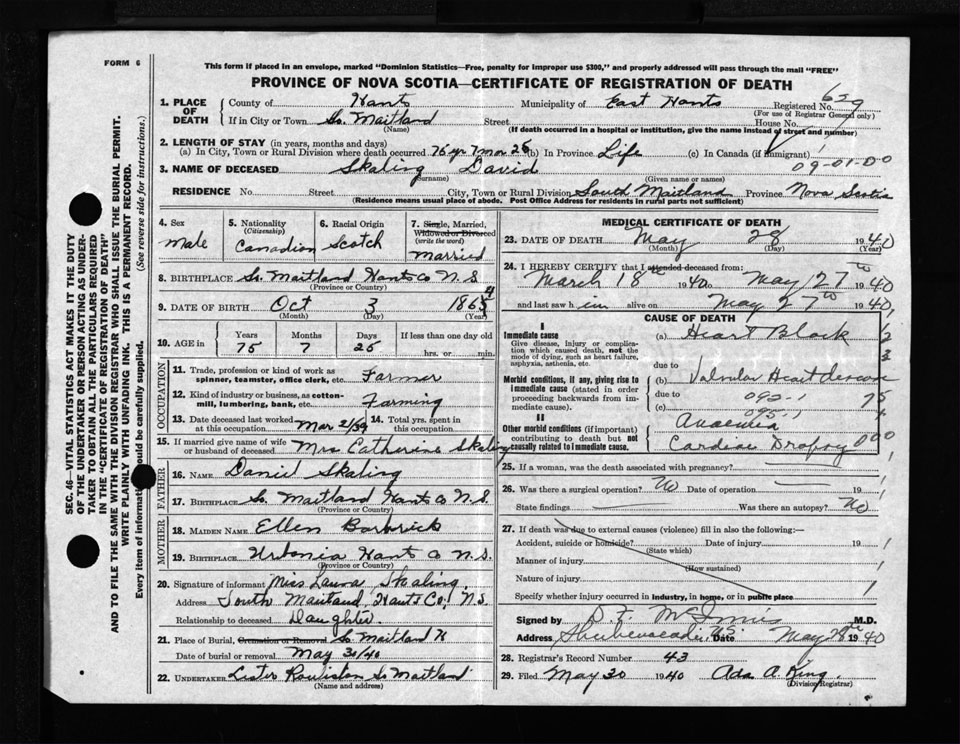 FORM 6
This form if placed in an envelope, marked "Dominion Statistics—Free, penalty for improper use $300," and properly addressed will pass through the mail "FREE"
PROVINCE OF NOVA SCOTIA—CERTIFICATE OF REGISTRATION OF DEATH
1. PLACE OF DEATH County of Hants Municipality of East Hants Registered No. 659
(For use of Registrar General only)
If in City or Town So. Maitland Street House No.
(Name) (If death occurred in a hospital or institution, give the name instead of street and number)
2. LENGTH OF STAY (in years, months and days)
(a) In City, Town or Rural Division where death occurred 76 yr 7 mos 25 (b) In Province Life (c) In Canada (if immigrant)
09-01-00
3. NAME OF DECEASED Skaling David
(Surname) (Given name or names)
RESIDENCE No. Street City, Town or Rural Division South Maitland Province Nova Scotia
(Residence means usual place of abode. Post Office Address for residents in rural parts not sufficient)
4. Sex Male
5. Nationality (Citizenship) Canadian
6. Racial Origin Scotch
7. Single, Married, Widowed or Divorced (write the word) Married
8. BIRTHPLACE So. Maitland Hants Co N.S.
(Province or Country)
9. DATE OF BIRTH Oct 3 1864
(Month) (Day) (Year)
10. AGE in Years Months Days If less than one day old
75 7 25 hrs. or min.
OCCUPATION
11. Trade, profession or kind of work as spinner, teamster, office clerk, etc. Farmer
12. Kind of industry or business, as cotton-mill, lumbering, bank, etc. Farming
13. Date deceased last worked at this occupation Mar 2/39
14. Total yrs. spent in this occupation
15. If married give name of wife or husband of deceased Mrs Catherine Skaling
FATHER
16. NAME Daniel Skaling
17. BIRTHPLACE So. Maitland Hants Co N.S.
(Province or Country)
MOTHER
18. MAIDEN NAME Ellen Barbrick
19. BIRTHPLACE Urbania Hants Co N.S.
(Province or Country)
20. Signature of informant Miss Laura Skaling
Address South Maitland, Hants Co, N.S.
Relationship to deceased Daughter.
21. Place of Burial, Cremation or Removal So Maitland H
Date of burial or removal May 30/40
22. UNDERTAKER Lister Roulston So Maitland
(Name and address)
MEDICAL CERTIFICATE OF DEATH
23. DATE OF DEATH May 28 1940
(Month) (Day)
24. I HEREBY CERTIFY that I attended deceased from:
March 18th 1940 to May 27th 1940
and last saw h im alive on May 27th 1940
CAUSE OF DEATH
I
Immediate cause
Give disease, injury or complication which caused death, not the mode of dying, such as heart failure, asphyxia, asthenia, etc.
(a) Heart Block
due to
Morbid conditions, if any, giving rise to immediate cause (stated in order proceeding backwards from immediate cause).
(b) Valvular Heart disease
due to 092-1
(c) 095-1
II
Other morbid conditions (if important) contributing to death but not causally related to immediate cause.
Anaemia
Cardiac Dropsy
25. If a woman, was the death associated with pregnancy?
26. Was there a surgical operation? No Date of operation 19
State findings Was there an autopsy? No
27. If death was due to external causes (violence) fill in also the following:—
Accident, suicide or homicide? Date of injury 19
(State which)
Manner of injury
(How sustained)
Nature of injury
Specify whether injury occurred in industry, in home, or in public place
Signed by D. F. McInnis M.D.
Address Shubenacadie, N.S. Date May 28th 1940
28. Registrar's Record Number 43
29. Filed May 30 1940 Ada A. King
(Division Registrar)
SEC. 46—VITAL STATISTICS ACT MAKES IT THE DUTY
OF THE UNDERTAKER OR PERSON ACTING AS UNDER-
TAKER TO OBTAIN ALL THE PARTICULARS REQUIRED
IN THE "CERTIFICATE OF REGISTRATION OF DEATH"
AND TO FILE THE SAME WITH THE DIVISION REGISTRAR WHO SHALL ISSUE THE BURIAL PERMIT.
WRITE PLAINLY WITH UNFADING INK. THIS IS A PERMANENT RECORD.
Every item of information should be carefully supplied. (See reverse side for instructions.)